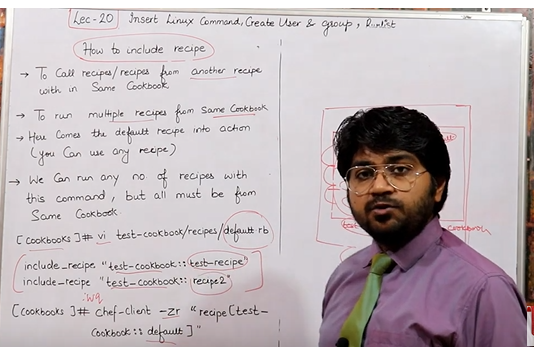 Lec-20 Insert Linux Command, Create User & group, Runlist
How to include recipe
→ To Call recipes/recipes from another recipe
with in Same Cookbook
→ To run multiple recipes from Same Cookbook
→ Here Comes the default recipe into action
(you Can use any recipe)
→ We Can run any no of recipes with
this command, but all must be from
Same Cookbook.
[cookbooks]# vi test-cookbook/recipes/default.rb
include_recipe "test-cookbook::test-recipe"
include_recipe "test-cookbook::recipe2"
:wq
[cookbooks]# chef-client -zr "recipe[test-
Cookbook::default]"
cookbook